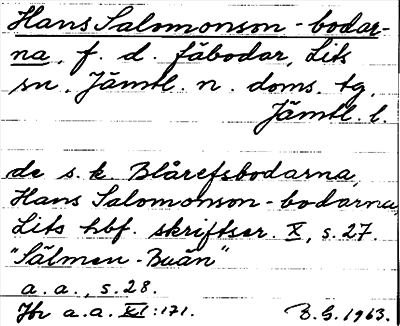 Hans Salomonson-bodar-
na, f. d. fäbodar, Lits
sn, Jämtl. n. doms. tg,
Jämtl. l.
de s. k. Blårefsbodarna,
Hans Salomonson-bodarna,
Lits hbf. skriftser. X, s. 27.
"Sälmen-Buän"
a. a., s. 28.
Jfr a. a. XI:171. B.G. 1963.